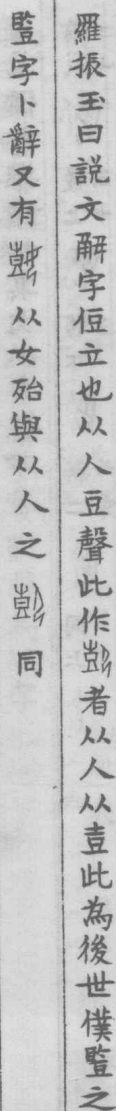 羅振玉曰説文解字侸立也从人豆聲此作者从人从壴此為後世僕豎之
豎字卜辭又有从女殆與从人之同